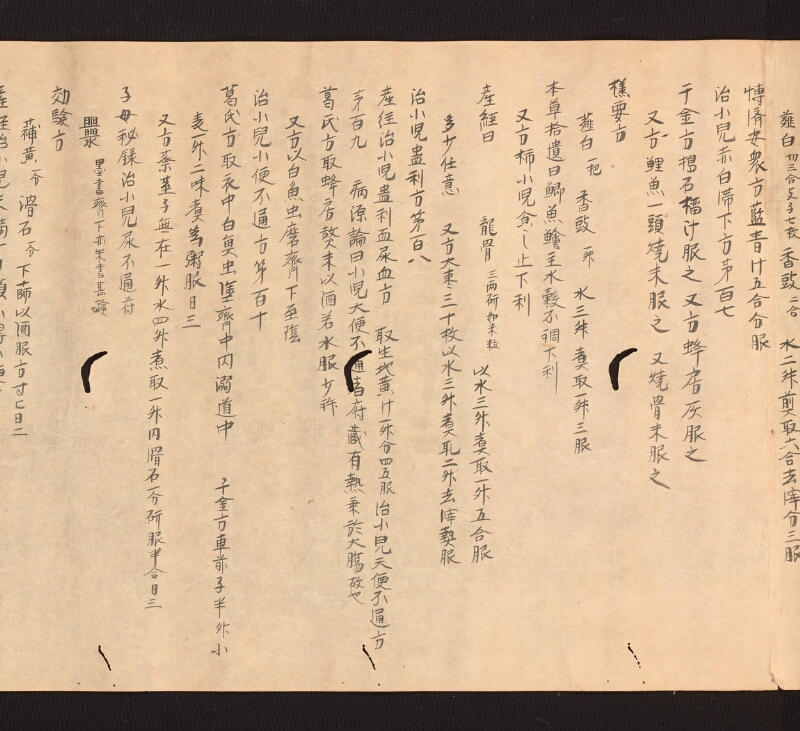 薤白 切三合 支子七枚 香豉 二合 水二升煎取六合去滓分三服
博濟安衆方藍青汁五合分服
治小児赤白滯下方第百七
千金方搗石榴汁服之 又方蜂房灰服之
又方鯉魚一頭燒末服之 又燒骨末服之
樵要方
薤白 一把 香豉 一升 水三升煮取一升三服
本草拾遺曰鯽魚鱠主水穀不調下利
又方柿小児食之止下利
産經曰 龍骨 三两研如米粒 以水三升煮取一升五合服
多少任意 又方大棗三十枚以水三升煮取二升去滓熱服
治小児蠱利方第百八
産経治小児蠱利面尿血方 取生地黄汁一升分四五服治小児大便不通方
第百九 病源論曰小児大便不通者府蔵有熱乗於大腸故也
葛氏方取蜂房熬末以酒若水服少許
又方以白魚虫磨齊下至陰
治小児小便不通方第百十
葛氏方取衣中白魚虫塗齊中内溺道中 千金方車前子半升小
麦一升二味煮為粥服日三
又方葉茎子無在一升水四升煮取一升内滑石一分研服半合日三
子母秘録治小児尿不通苻
墨書齊下亦朱書甚驗
効驗方
蒲黄 一分 滑石 一分 下篩以酒服方寸匕日二